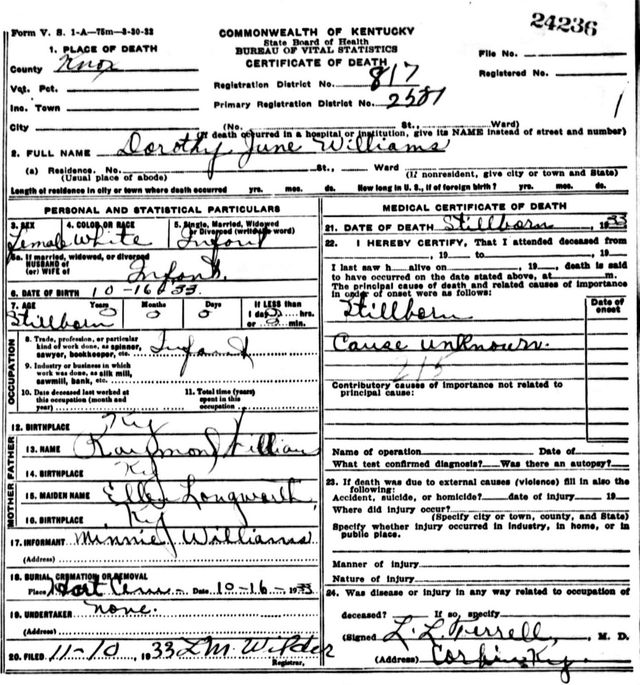 24236
Form V. S. 1-A—75m—3-30-32
COMMONWEALTH OF KENTUCKY
State Board of Health
BUREAU OF VITAL STATISTICS
CERTIFICATE OF DEATH
1. PLACE OF DEATH
County Knox
Vot. Pct.
Inc. Town
City
File No.
Registered No. 1
Registration District No. 817
Primary Registration District No. 2581
(No. St., Ward)
(If death occurred in a hospital or institution, give its NAME instead of street and number)
2. FULL NAME Dorothy June Williams
(a) Residence. No. St., Ward
(Usual place of abode) (If nonresident, give city or town and State)
Length of residence in city or town where death occurred yrs. mos. ds. How long in U. S., if of foreign birth? yrs. mos. ds.
PERSONAL AND STATISTICAL PARTICULARS
3. SEX 4. COLOR OR RACE 5. Single, Married, Widowed or Divorced (write the word)
Female White Infant
5a. If married, widowed, or divorced
HUSBAND of
(or) WIFE of Infant
6. DATE OF BIRTH 10-16-33.
7. AGE Years Months Days If LESS than
Stillborn 0 0 0 1 day 0 hrs.
or 0 min.
OCCUPATION
8. Trade, profession, or particular
kind of work done, as spinner,
sawyer, bookkeeper, etc. Infant
9. Industry or business in which
work was done, as silk mill,
sawmill, bank, etc.
10. Date deceased last worked at
this occupation (month and
year)
11. Total time (years)
spent in this
occupation
12. BIRTHPLACE Ky
FATHER
13. NAME Raymond Williams
14. BIRTHPLACE Ky
MOTHER
15. MAIDEN NAME Ellen Longworth
16. BIRTHPLACE Ky
17. INFORMANT Minnie Williams
(Address)
18. BURIAL CREMATION OR REMOVAL
Place Hart Cem. Date 10-16-1933
19. UNDERTAKER None.
(Address)
20. FILED 11-10, 1933 L M. Wilder
Registrar.
MEDICAL CERTIFICATE OF DEATH
21. DATE OF DEATH Stillborn 1933
22. I HEREBY CERTIFY, That I attended deceased from
, 19 to , 19
I last saw h alive on , 19 , death is said
to have occurred on the date stated above, at m.
The principal cause of death and related causes of importance
in order of onset were as follows:
Date of
onset
Stillborn
Cause unknown.
Contributory causes of importance not related to
principal cause:
Name of operation Date of
What test confirmed diagnosis? Was there an autopsy?
23. If death was due to external causes (violence) fill in also the
following:
Accident, suicide, or homicide? date of injury 19
Where did injury occur?
(Specify city or town, county, and State)
Specify whether injury occurred in industry, in home, or in
public place.
Manner of injury
Nature of injury
24. Was disease or injury in any way related to occupation of
deceased? If so, specify
(Signed L. L. Terrell, M. D.
(Address) Corbin, Ky.